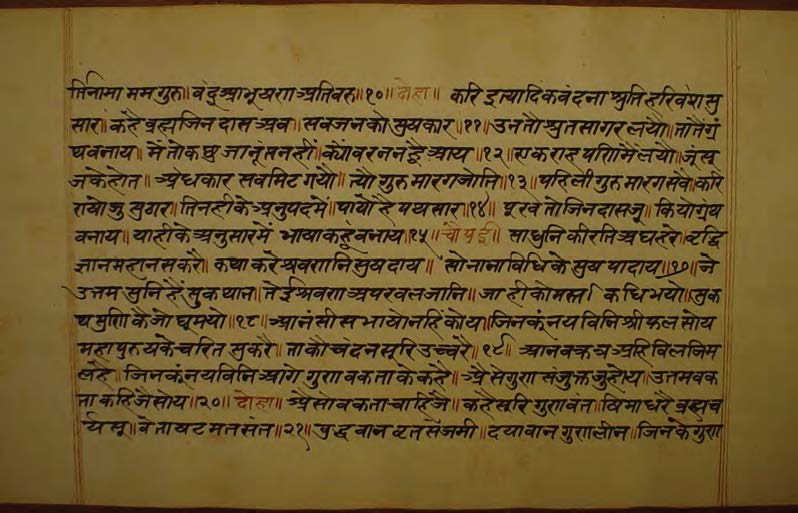 तिनामा मम गुरु॥ वंदु आभूषण अतिवरु॥१०॥ दोहा॥ करि इत्यादिक वंदना श्रुति हरिवंश सु
सार॥ कहै ब्रह्मजिनदास अब॥ सब जन कौ सुषकार॥११॥ उनतौ श्रुतसागर लयौ॥ तातै ग्रं
थ बनाय॥ मैं तो कछु जानूं सनहीं॥ क्यों वरननई आय॥१२॥ एक राह पणि मैं लयौ॥ जूं सू
ज के होत॥ अंधकार सब मिट गयौ॥ त्यौं गुरु मारग जोति॥१३॥ पहिली गुरु मारग सबै॥ करि
गयो जु सुठार॥ तिनहीके अनुपद मैं॥ पायो है पथ सार॥१४॥ पूरब तो जिनदासजू॥ कियो ग्रंथ
बनाय॥ याहीके अनुसार मैं भाषा कहू बनाय॥१५॥ चौपई॥ साधुनि कीरति अघ हरे॥ वृद्धि
ज्ञान महान स करै॥ कथा करे श्रवणनि सुषदाय॥ सो नानाविधि के सुष पादाय॥१७॥ जे
उत्तम सुनि हैं सुकथान॥ तेई श्रवण अपर बल जानि॥ जाहीको मस्तक धनि भयो॥ सुक
थ सुणि कै जो घूमयो॥१८॥ आनं सीस भायो नहिं कोय॥ जिनकंनय विनि श्रीफल सोय
महापुरुष के चरित सु करै॥ ताकौ वंदन सूरि उच्चरे॥१९॥ आन वक्त्र अहि विल जिम
लहे॥ जिनकंनय विनि आगे गुण वकता के कहै॥ अैसे गुण संजुक्त जु होय॥ उत्तम वक
ता कहिजै सोय॥२०॥ दोहा॥ अैसो वकता चाहिजै॥ कहै सूरि गुणवंत॥ षिमा धरै ब्रह्मच
र्य सू॥ वेता षट मत संत॥२१॥ बुद्धवान व्रत सैजमी॥ दयावान गुणलीन॥ जिनके गुण